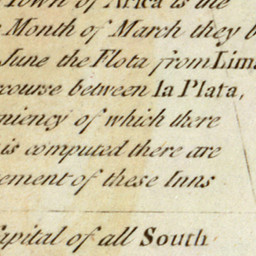 Town of Arica is the
Month of March they b
June the Flota from Lim
course between la Plata,
niency of which there
is computed there are
ement of these Inns
apital of all South